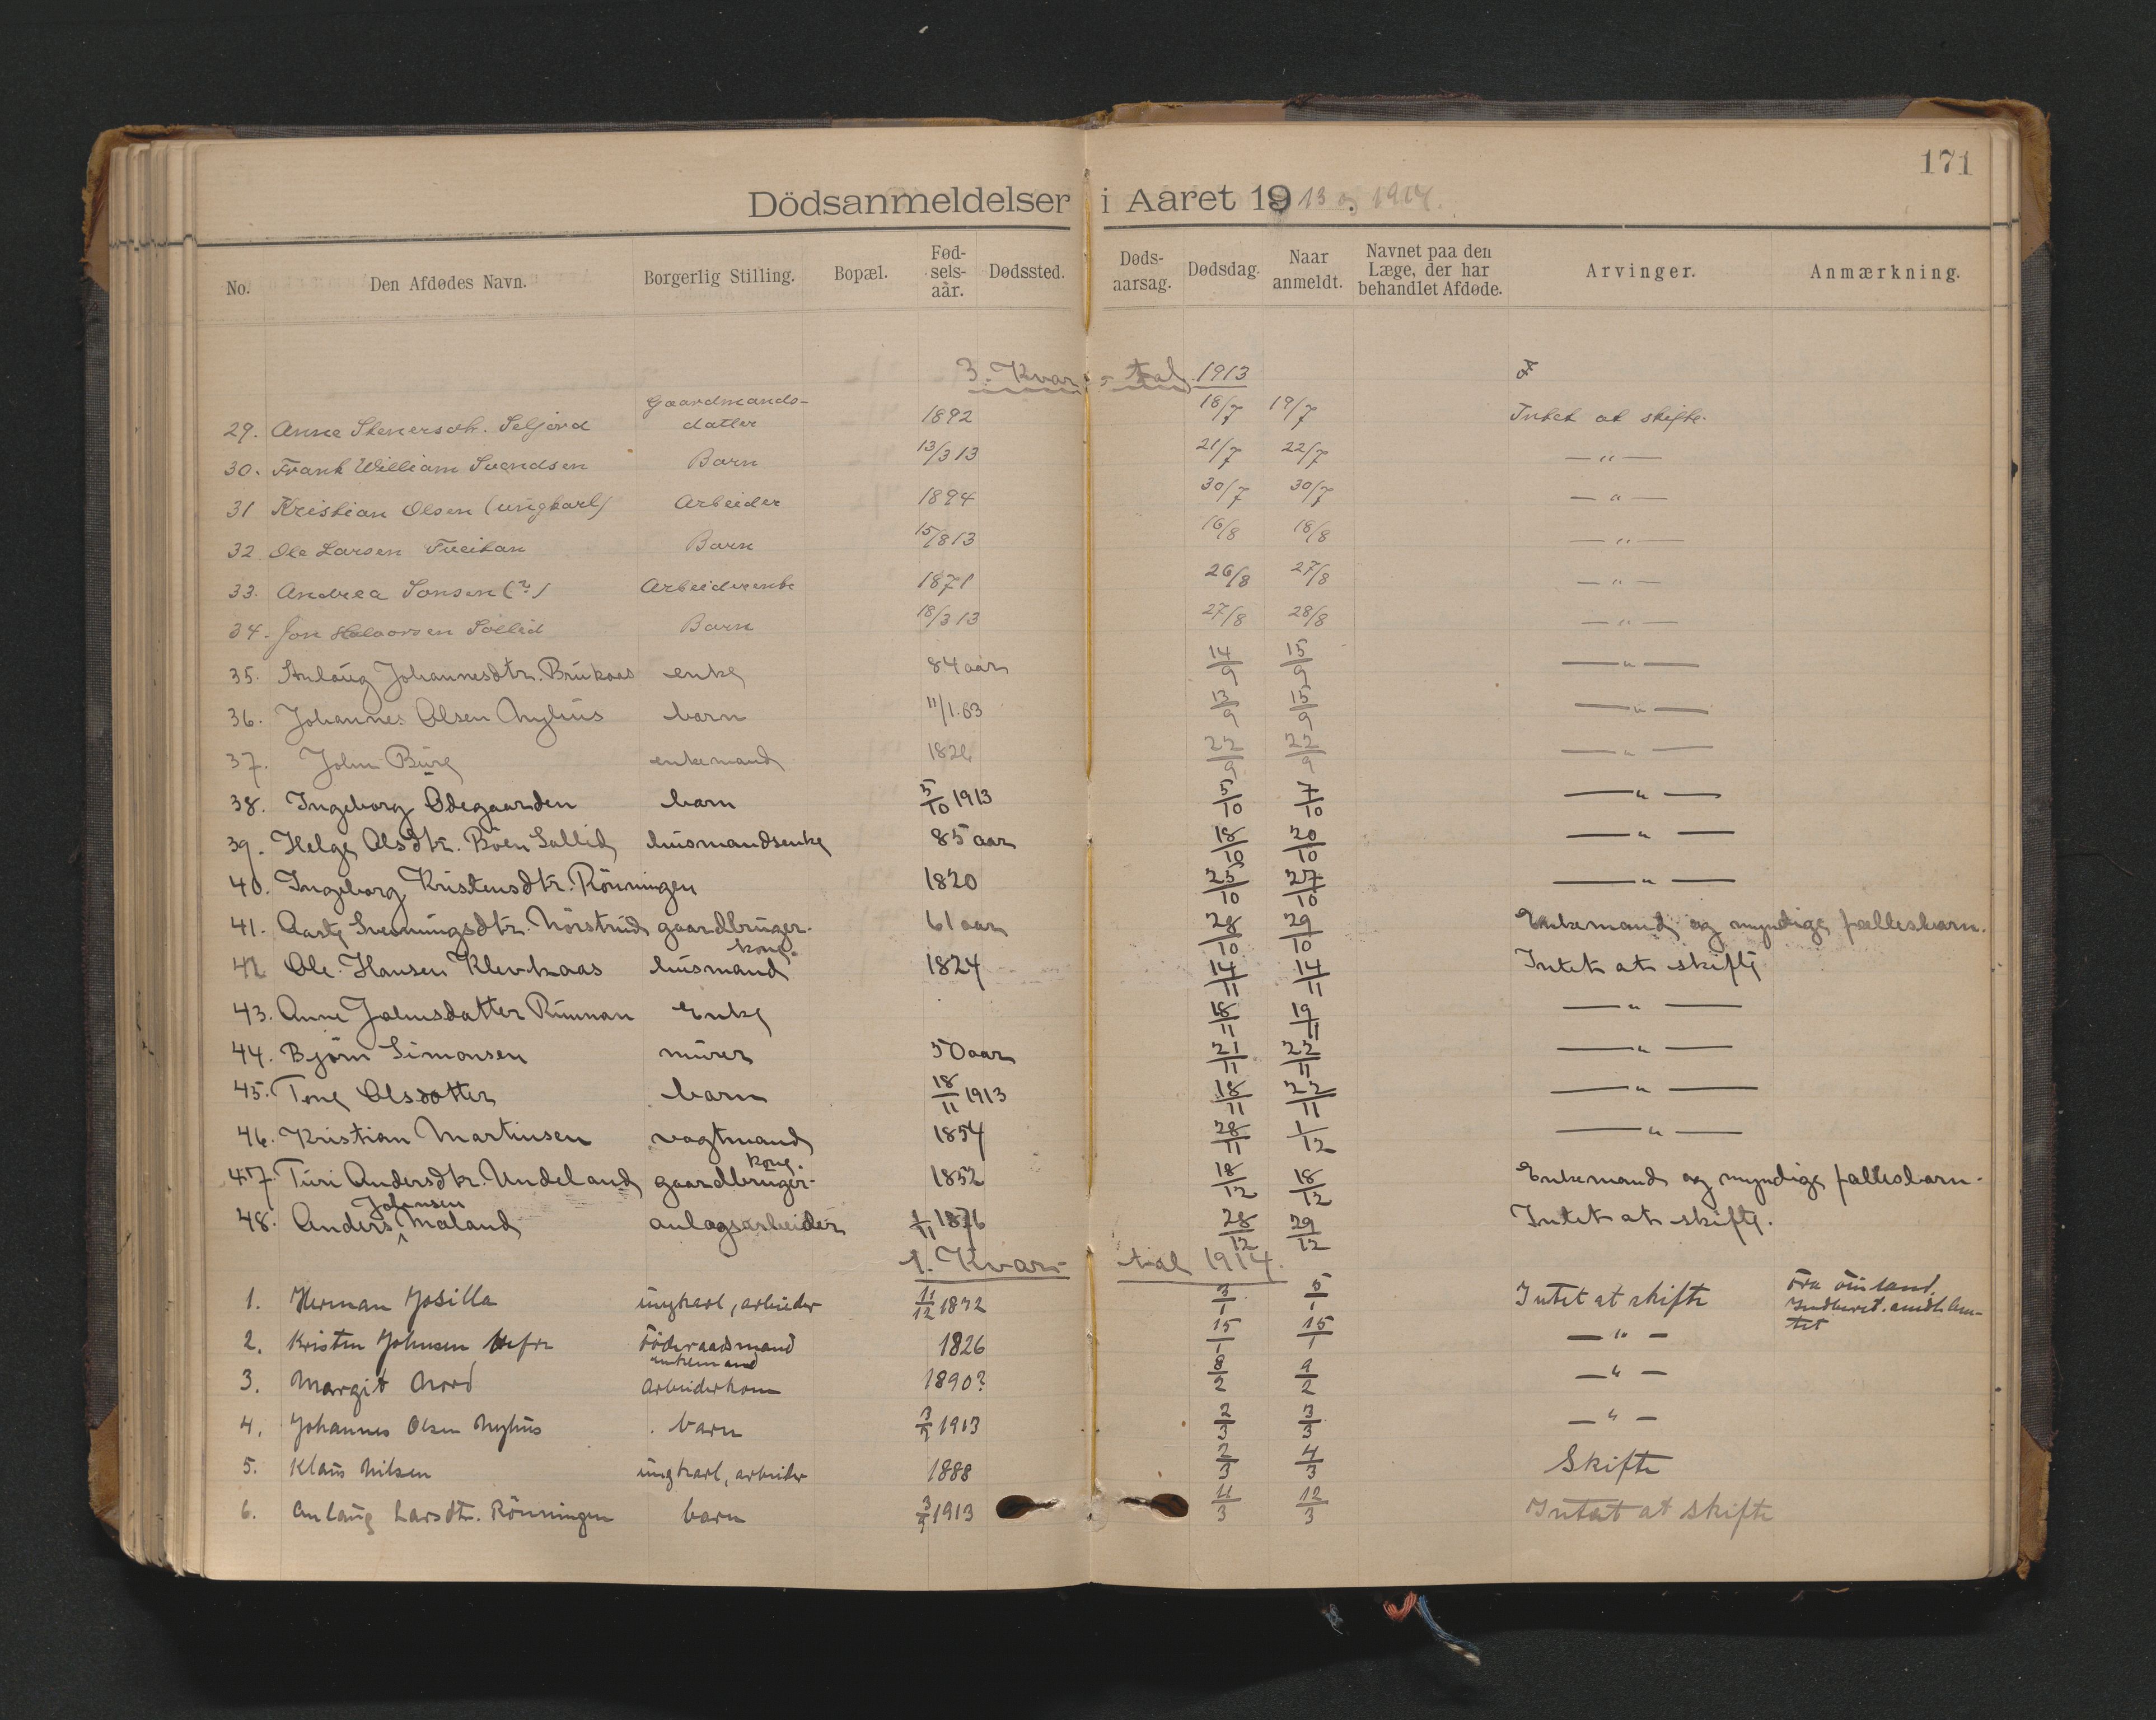 171
Dödsanmeldelser i Aaret 1913 og 1914.
No. Den Afdødes Navn. Borgerlig Stilling. Bopæl. Fød-sels-aar. Dødssted. Døds-aarsag. Dødsdag. Naar anmeldt. Navnet paa den Læge, der har behandlet Afdøde. Arvinger. Anmærkning.
3. Kvar-tal 1913
29. Anne Stenersdtr. Seljord Gaardmands-datter 1892 18/7 19/7 Intet at skifte.
30. Frank William Svendsen Barn 13/3 13 21/7 22/7 — " —
31 Kristian Olsen (ungkarl) Arbeider 1894 30/7 30/7 — " —
32 Ole Larsen Barn 15/8 13 16/8 18/8 — " —
33. Andrea Jonsen (?) Arbeiderenke 1871 26/8 27/8 — " —
34. Jon Halvorsen Sollid Barn 18/3 13 27/8 28/8 — " —
35. Anlaug Johannesdtr. Brukaas enke 84 aar 14/9 15/9 — " —
36. Johannes Olsen Nyhus barn 13/9 15/9 — " —
37. John Burg enkemand 22/9 22/9 — " —
38. Ingeborg Ödegaarden barn 5/10 1913 5/10 7/10 — " —
39. Helge Olsdtr. Böen Sollid husmandsenke 85 aar 18/10 20/10 — " —
40. Ingeborg Kristensdtr. Rönningen 1820 25/10 27/10 — " —
41. Aaste Sveinungsdtr. Norstrud gaardbruger-kone. 61 aar 28/10 29/10 Enkemand og myndige fællesbarn.
42 Ole Hansen Klevkaas husmand 1824 14/11 14/11 Intet at skifte
43. Anne Johnsdatter Runnan Enke 18/11 19/11 — " —
44. Bjørn Simonsen murer 50 aar 21/11 22/11 — " —
45. Tone Olsdotter barn 18/11 1913 18/11 22/11 — " —
46. Kristian Martinsen vagtmand 1854 28/11 1/12 — " —
47. Turi Andersdtr. Undeland gaardbruger-kone. 1852 18/12 18/12 Enkemand og myndige fællesbarn.
48. Anders Johnsen Maland anlagsarbeider 1/11 1876 28/12 29/12 Intet at skifte.
1. Kvar-tal 1914.
1. Herman Josilla ungkarl, arbeider 3/1 5/1 Intet at skifte
2. Kristen Johnsen föderaadsmand enkemand 1826 15/1 15/1 — " —
3. Margit Nord arbeiderkone 1890? 8/2 9/2 — " —
4. Johannes Olsen Nyhus barn 1913 2/3 3/3 — " —
5. Klaus Nilsen ungkarl, arbeider 1888 2/3 4/3 Skifte
6. Anlaug Larsdtr. Rönningen barn 1913 11/3 12/3 Intet at skifte